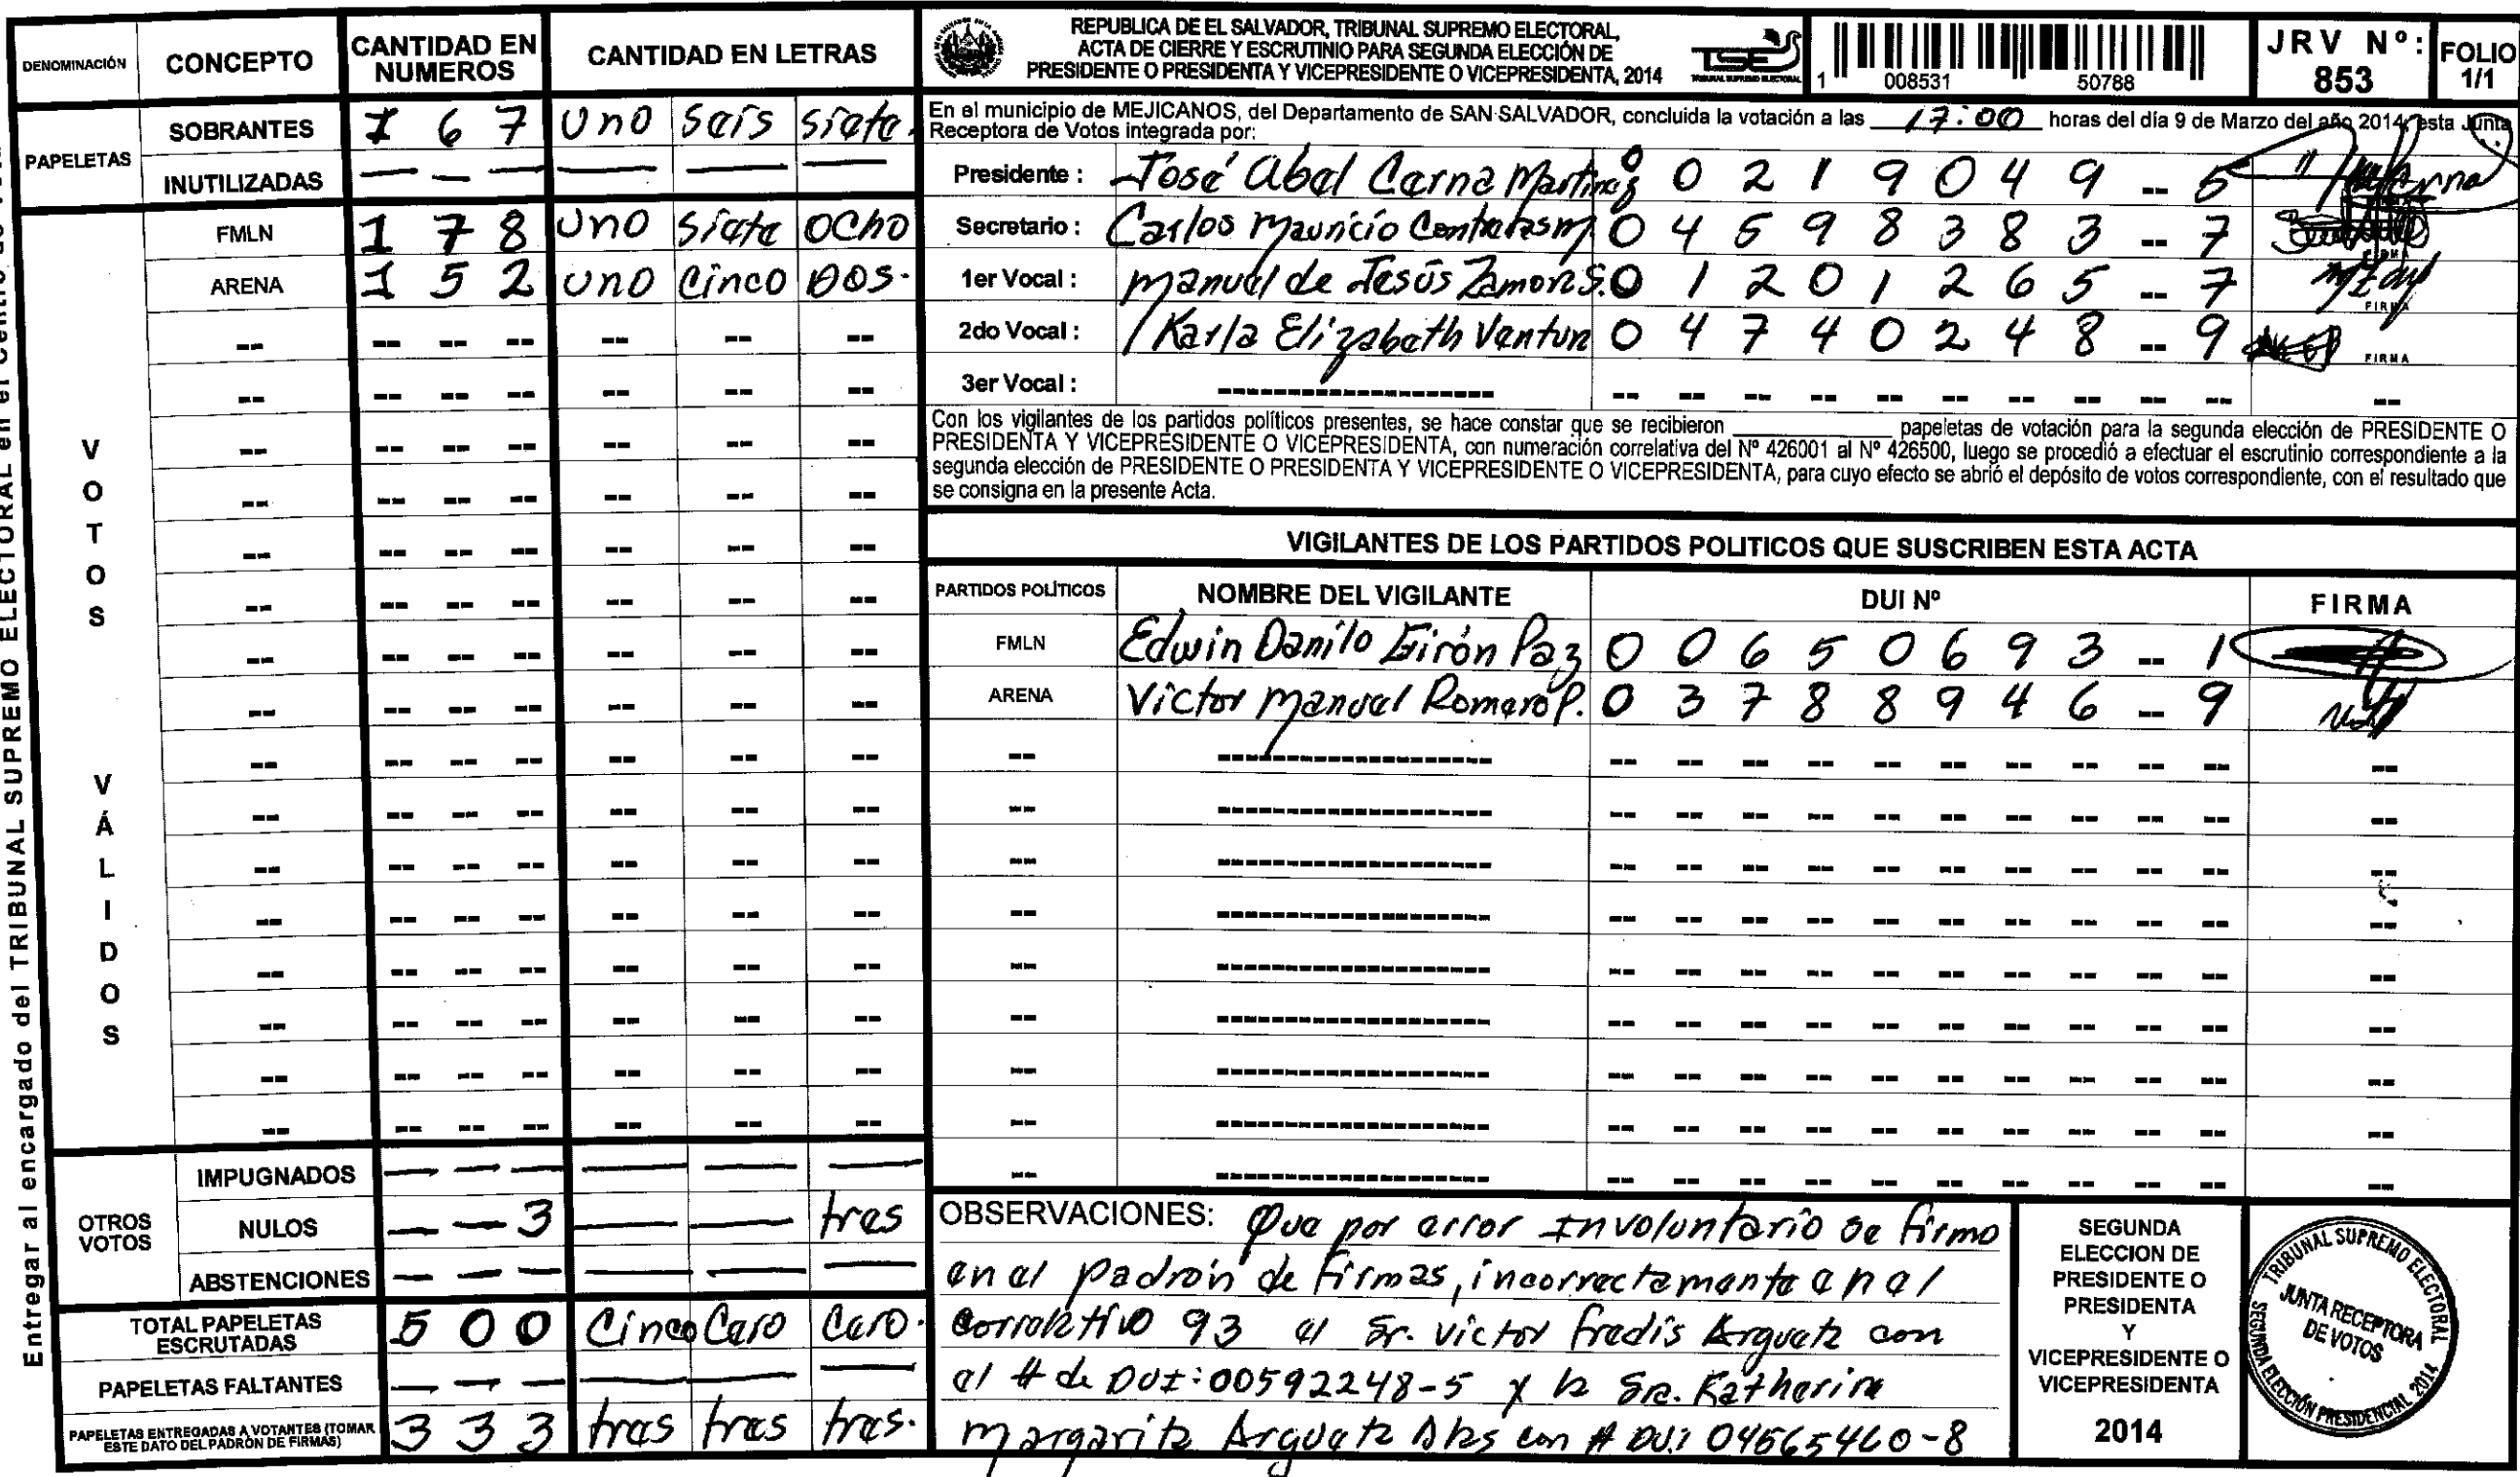 DENOMINACIÓN CONCEPTO CANTIDAD EN NUMEROS CANTIDAD EN LETRAS
PAPELETAS
SOBRANTES 1 6 7 uno seis siete.
INUTILIZADAS — — — — — —
VOTOS VÁLIDOS
FMLN 1 7 8 uno siete ocho
ARENA 1 5 2 uno cinco Dos.
OTROS VOTOS
IMPUGNADOS — — — — — —
NULOS — — 3 — — tres
ABSTENCIONES — — — — — —
TOTAL PAPELETAS ESCRUTADAS 5 0 0 Cinco Cero Cero.
PAPELETAS FALTANTES — — — — — —
PAPELETAS ENTREGADAS A VOTANTES (TOMAR ESTE DATO DEL PADRÓN DE FIRMAS) 3 3 3 tres tres tres.
Entregar al encargado del TRIBUNAL SUPREMO ELECTORAL en el Centro de
REPUBLICA DE EL SALVADOR, TRIBUNAL SUPREMO ELECTORAL,
ACTA DE CIERRE Y ESCRUTINIO PARA SEGUNDA ELECCIÓN DE
PRESIDENTE O PRESIDENTA Y VICEPRESIDENTE O VICEPRESIDENTA, 2014
TSE
TRIBUNAL SUPREMO ELECTORAL
1 008531 50788
JRV Nº: 853
FOLIO 1/1
En el municipio de MEJICANOS, del Departamento de SAN SALVADOR, concluida la votación a las 17:00 horas del día 9 de Marzo del año 2014, esta Junta
Receptora de Votos integrada por:
Presidente : José Abel Cerna Martinez 0 0 2 1 9 0 4 9 -- 5
Secretario : Carlos Mauricio Contreras m 0 4 5 9 8 3 8 3 -- 7
1er Vocal : Manuel de Jesús Zamora S. 0 1 2 0 1 2 6 5 -- 7 FIRMA
2do Vocal : Karla Elizabeth Ventura 0 4 7 4 0 2 4 8 -- 9 FIRMA
3er Vocal :
Con los vigilantes de los partidos políticos presentes, se hace constar que se recibieron ________ papeletas de votación para la segunda elección de PRESIDENTE O
PRESIDENTA Y VICEPRESIDENTE O VICEPRESIDENTA, con numeración correlativa del Nº 426001 al Nº 426500, luego se procedió a efectuar el escrutinio correspondiente a la
segunda elección de PRESIDENTE O PRESIDENTA Y VICEPRESIDENTE O VICEPRESIDENTA, para cuyo efecto se abrió el depósito de votos correspondiente, con el resultado que
se consigna en la presente Acta.
VIGILANTES DE LOS PARTIDOS POLITICOS QUE SUSCRIBEN ESTA ACTA
PARTIDOS POLÍTICOS NOMBRE DEL VIGILANTE DUI Nº FIRMA
FMLN Edwin Danilo Girón Paz 0 0 6 5 0 6 9 3 -- 1
ARENA Victor Manuel Romero P. 0 3 7 8 8 9 4 6 -- 9
OBSERVACIONES: Que por error Involuntario se firmo
en el padrón de firmas, incorrectamente en el
correlativo 93 el Sr. victor fredis Argueta con
el # de DUI: 00592248-5 y la Sra. Katherine
Margarita Argueta con # DUI 04565460-8
SEGUNDA
ELECCION DE
PRESIDENTE O
PRESIDENTA
Y
VICEPRESIDENTE O
VICEPRESIDENTA
2014
TRIBUNAL SUPREMO ELECTORAL
JUNTA RECEPTORA
DE VOTOS
SEGUNDA ELECCIÓN PRESIDENCIAL 2014